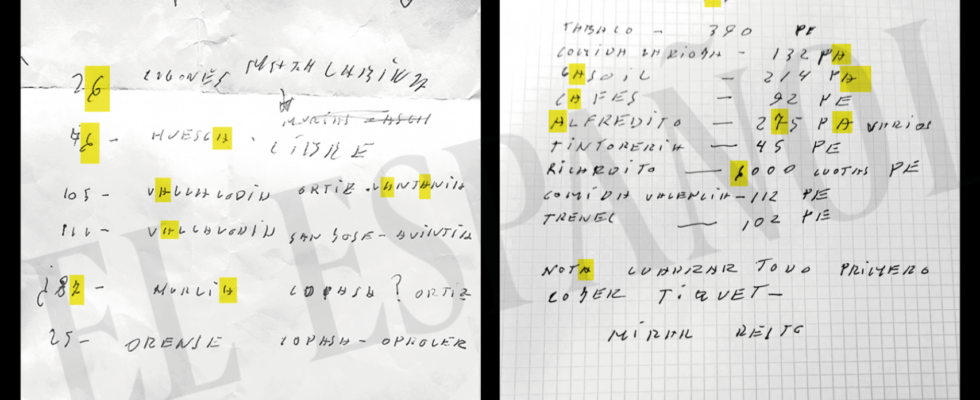 26 LUGONÉS MATA LABIANA
MURIAS
76 - HUESCA - LIBRE
105 - VALLADOLID ORTIZ - LANTANIA
111 - VALLADOLID SAN JOSE - AVINTIA
¿87 - MURCIA COPASA ? ORTIZ
25 - ORENSE COPASA - OPROLER
TABACO - 390 PE
COMIDA VARIOSA - 132 PA
GASOIL - 214 PA
CAFES - 92 PE
ALFREDITO - 275 PA VARIOS
TINTORERIA - 45 PE
RICARDITO - 6000 CUOTAS PE
COMIDA VALENCIA - 112 PE
TRENEC - 102 PE
NOTA CUADRAR TODO PRIMERO
COGER TIQUET -
MIRAR RESTO
EL ESPAÑOL